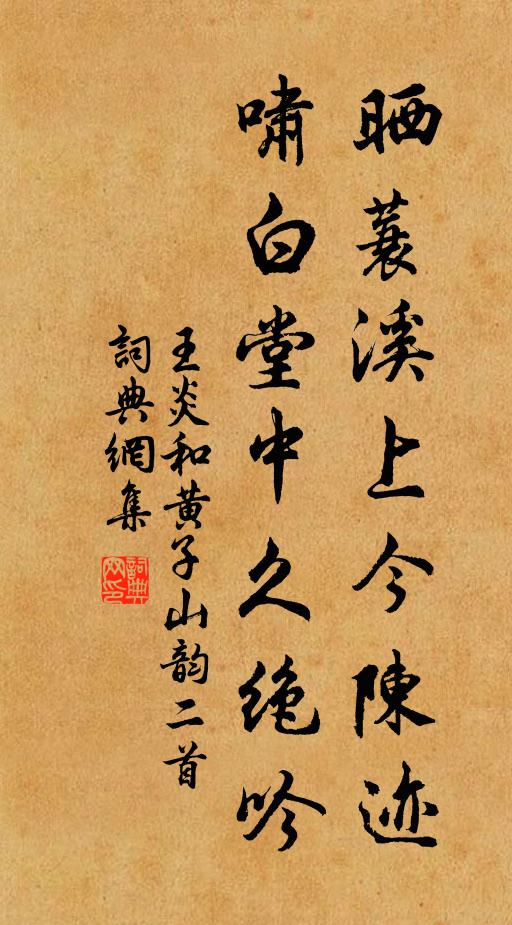 晒蓑溪上今陳迹
嘯白堂中久绝吟
王炎和黄子山韵二首
詞典網集
詞典网印